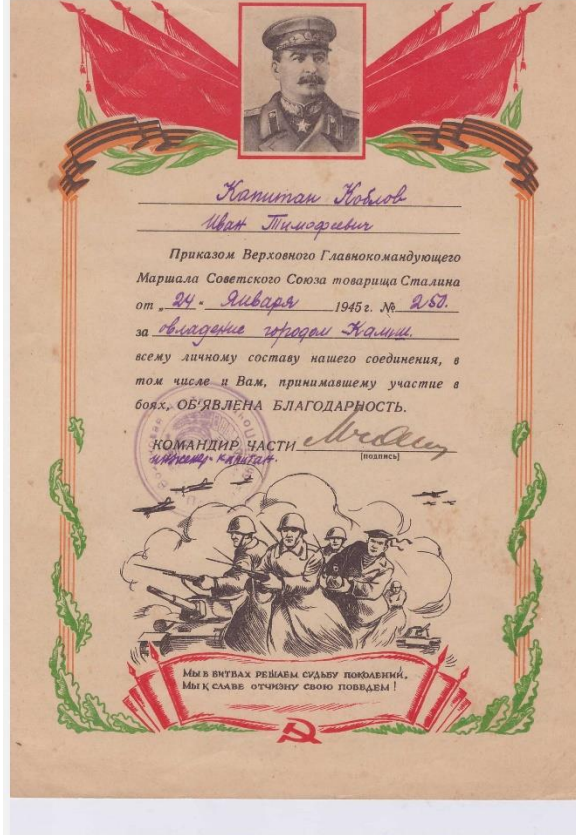 Капитан Коблов
Иван Тимофеевич
Приказом Верховного Главнокомандующего
Маршала Советского Союза товарища Сталина
от „24" Января 1945 г. № 250.
за овладение городом Калиш.
всему личному составу нашего соединения, в
том числе и Вам, принимавшему участие в
боях, ОБ'ЯВЛЕНА БЛАГОДАРНОСТЬ.
КОМАНДИР ЧАСТИ
инженер-капитан.
[подпись]
Мы в битвах решаем судьбу поколений,
Мы к славе отчизну свою поведем!